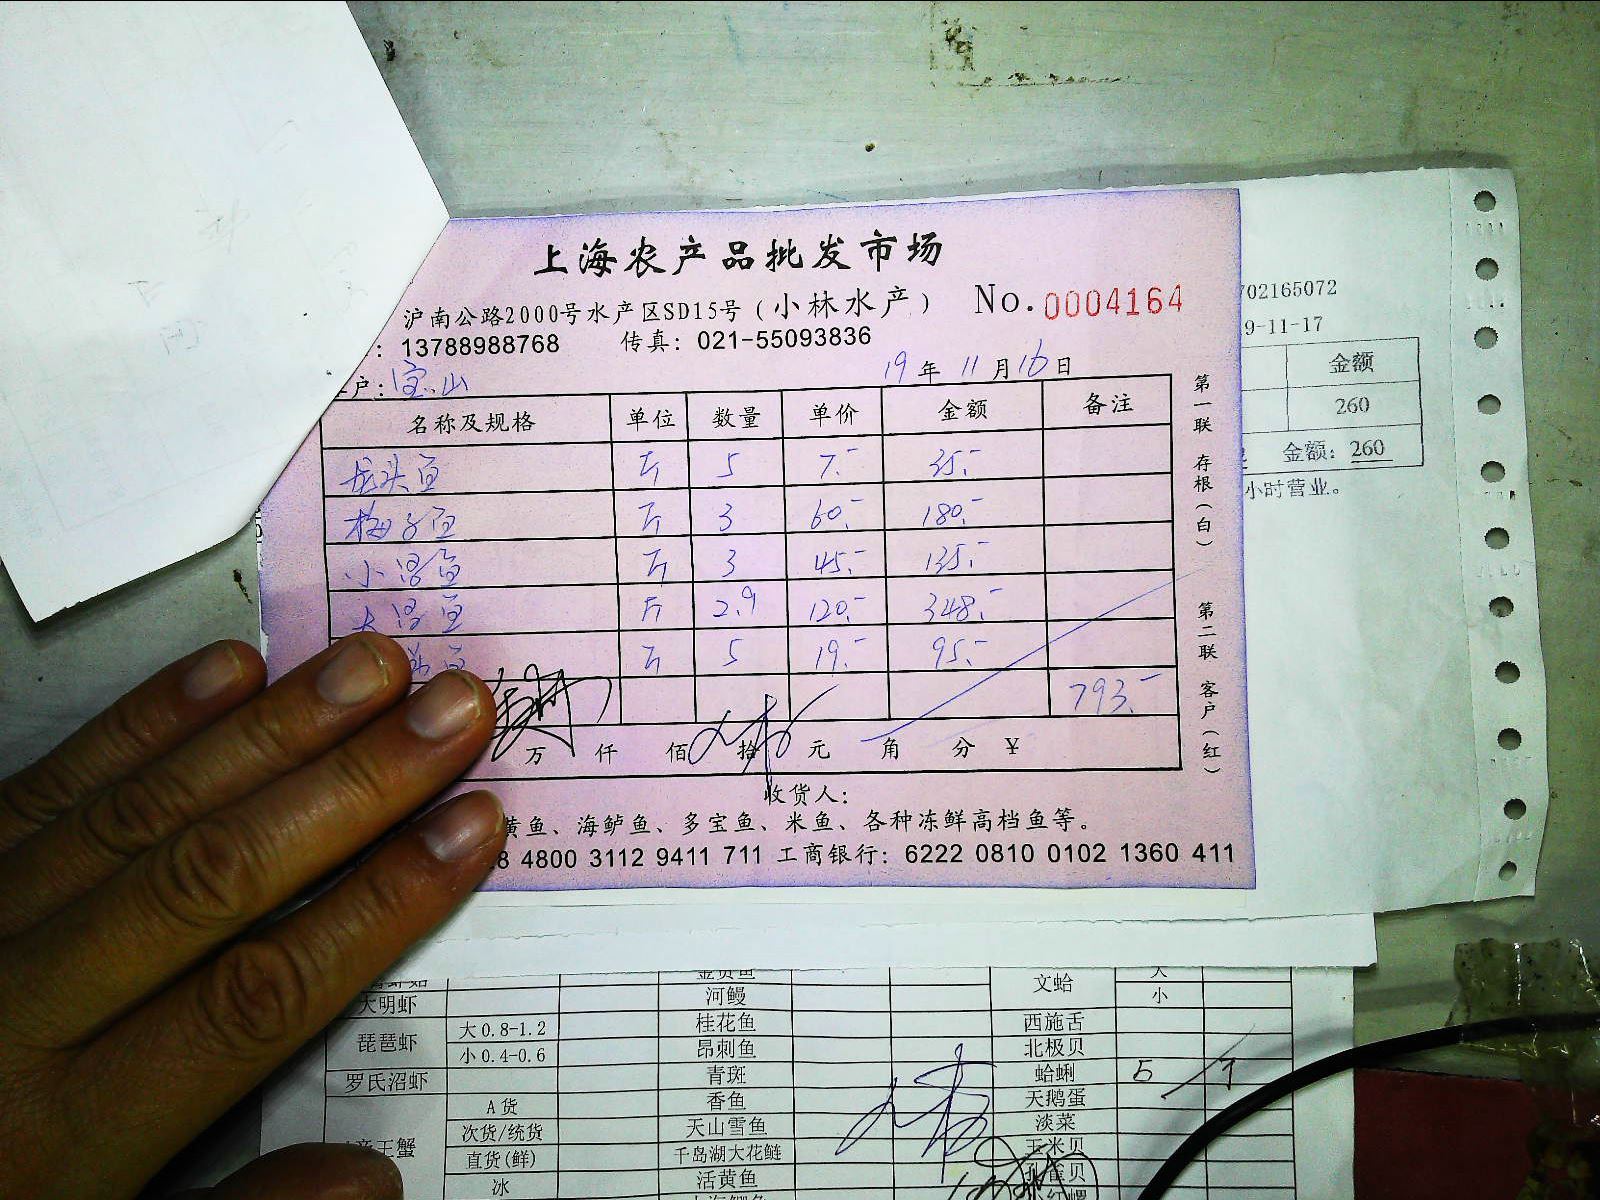 上海农产品批发市场
沪南公路2000号水产区SD15号(小林水产) No.0004164
: 13788988768 传真: 021-55093836
户: 宝山 19年11月16日
名称及规格 单位 数量 单价 金额 备注
龙头鱼 斤 5 7.- 35.-
梅子鱼 斤 3 60.- 180.-
小 鱼 斤 3 45.- 135.-
大 鱼 斤 2.9 120.- 348.-
鱼 斤 5 19.- 95.-
793.-
万 仟 佰 拾 元 角 分 ¥
收货人:
黄鱼、海鲈鱼、多宝鱼、米鱼、各种冻鲜高档鱼等。
8 4800 3112 9411 711 工商银行: 6222 0810 0102 1360 411
第一联 存根(白)
第二联 客户(红)
702165072
9-11-17
金额
260
金额: 260
小时营业。
大明虾 河鳗 文蛤 大
小
琵琶虾 大0.8-1.2 桂花鱼 西施舌
小0.4-0.6 昂刺鱼 北极贝
罗氏沼虾 青斑 蛤蜊 5
A货 香鱼 天鹅蛋
帝王蟹 次货/统货 天山雪鱼 淡菜
直货(鲜) 千岛湖大花鲢 玉米贝
冰 活黄鱼 孔雀贝